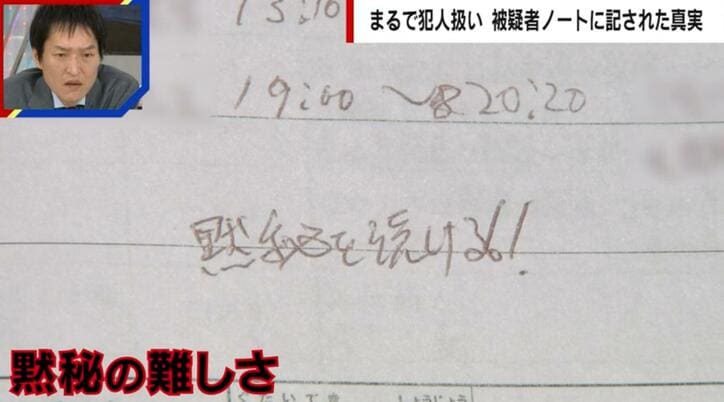 まるで犯人扱い 被疑者ノートに記された真実
13:10
19:00〜20:20
黙秘を続ける!!
黙秘の難しさ